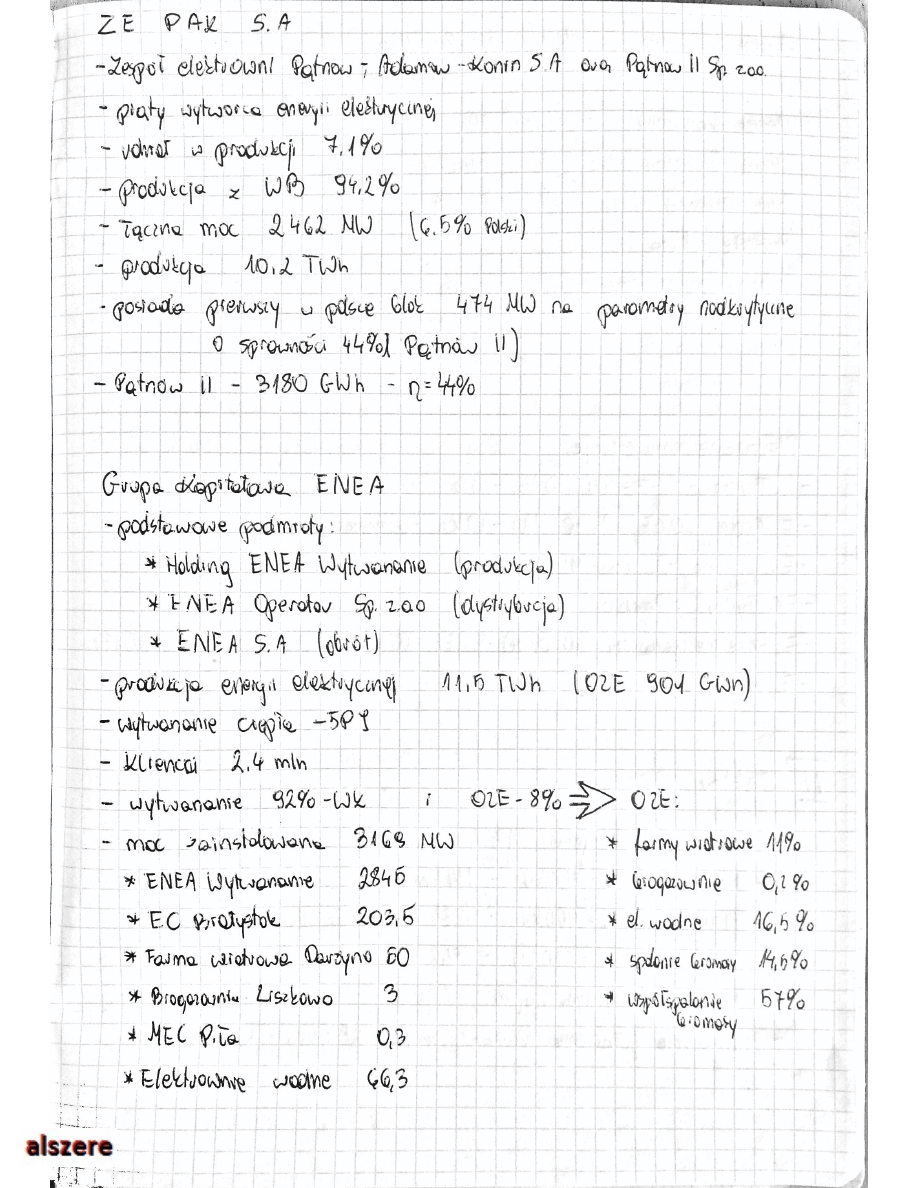 ZE PAK S.A
- Zespół elektrowni Pątnów - Adamów - Konin S.A oraz Pątnów II Sp. z o.o.
- piąty wytwórca energii elektrycznej
- udział w produkcji 7,1%
- produkcja z WB 94,2%
- łączna moc 2462 MW (6,5% Polski)
- produkcja 10,2 TWh
- posiada pierwszy w polsce blok 474 MW na parametry nadkrytyczne
O sprawności 44% ( Pątnów II )
- Pątnów II - 3180 GWh - η = 44%
Grupa Kapitałowa ENEA
- podstawowe podmioty:
* Holding ENEA Wytwarzanie (produkcja)
* ENEA Operator Sp. z.o.o (dystrybucja)
* ENEA S.A (obrót)
- produkcja energii elektrycznej 11,5 TWh (OZE 904 GWh)
- wytwarzanie ciepła - 5PJ
- Klienci 2,4 mln
- wytwarzanie 92% - WK i OZE - 8% ⇒ OZE:
- moc zainstalowana 3168 MW
* farmy wiatrowe 11%
* ENEA Wytwarzanie 2845
* biogazownie 0,2%
* EC Białystok 203,5
* el. wodne 16,5%
* Farma wiatrowa Darżyno 50
* spalanie biomasy 14,5%
* Biogazownia Liszkowo 3
* współspalanie 57%
biomasy
* MEC Piła 0,3
* Elektrownie wodne 66,3
alszere